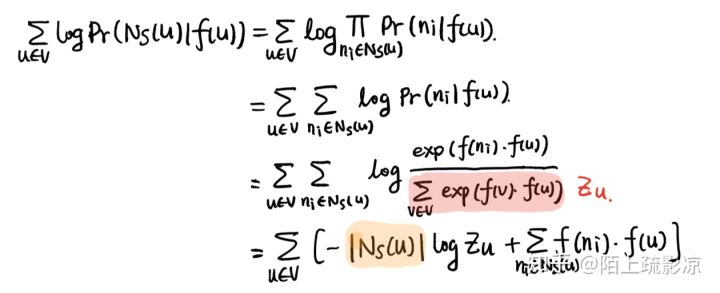 ∑_{u∈V} log Pr(N_S(u)|f(u)) = ∑_{u∈V} log ∏_{n_i∈N_S(u)} Pr(n_i|f(u)).
= ∑_{u∈V} ∑_{n_i∈N_S(u)} log Pr(n_i|f(u)).
= ∑_{u∈V} ∑_{n_i∈N_S(u)} log exp(f(n_i)·f(u)) / ∑_{v∈V} exp(f(v)·f(u)) Z_u.
= ∑_{u∈V} [-|N_S(u)| log Z_u + ∑_{n_i∈N_S(u)} f(n_i)·f(u)]
知乎 @陌上疏影凉